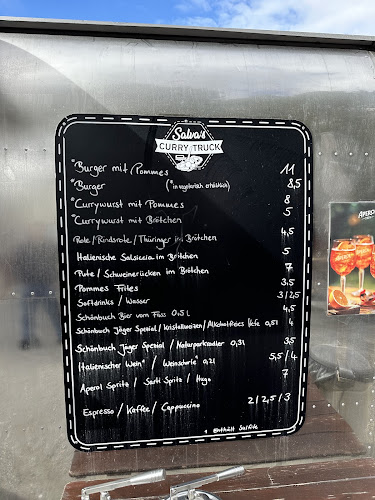 Salva's
CURRY TRUCK
*Burger mit Pommes 11
*Burger (*in vegetarisch erhältlich) 8,5
*Currywurst mit Pommes 8
*Currywurst mit Brötchen 5
Rote/Rindsrote/Thüringer im Brötchen 4,5
Italienische Salsiccia im Brötchen 5
Pute/Schweinerücken im Brötchen 7
Pommes Frites 3,5
Softdrinks/Wasser 3/2,5
Schönbuch Bier vom Fass 0,5l 4,5
Schönbuch Jäger Spezial/Kristallweizen/Alkoholfreies/Hefe 0,5l 4
Schönbuch Jäger Spezial/Naturparkradler 0,3l 3,5
Italienischer Wein¹/Weinschorle¹ 0,2l 5,5/4
Aperol Spritz/Sarti Spritz/Hugo 7
Espresso/Kaffee/Cappuccino 2/2,5/3
1 Enthält Sulfite
APEROL